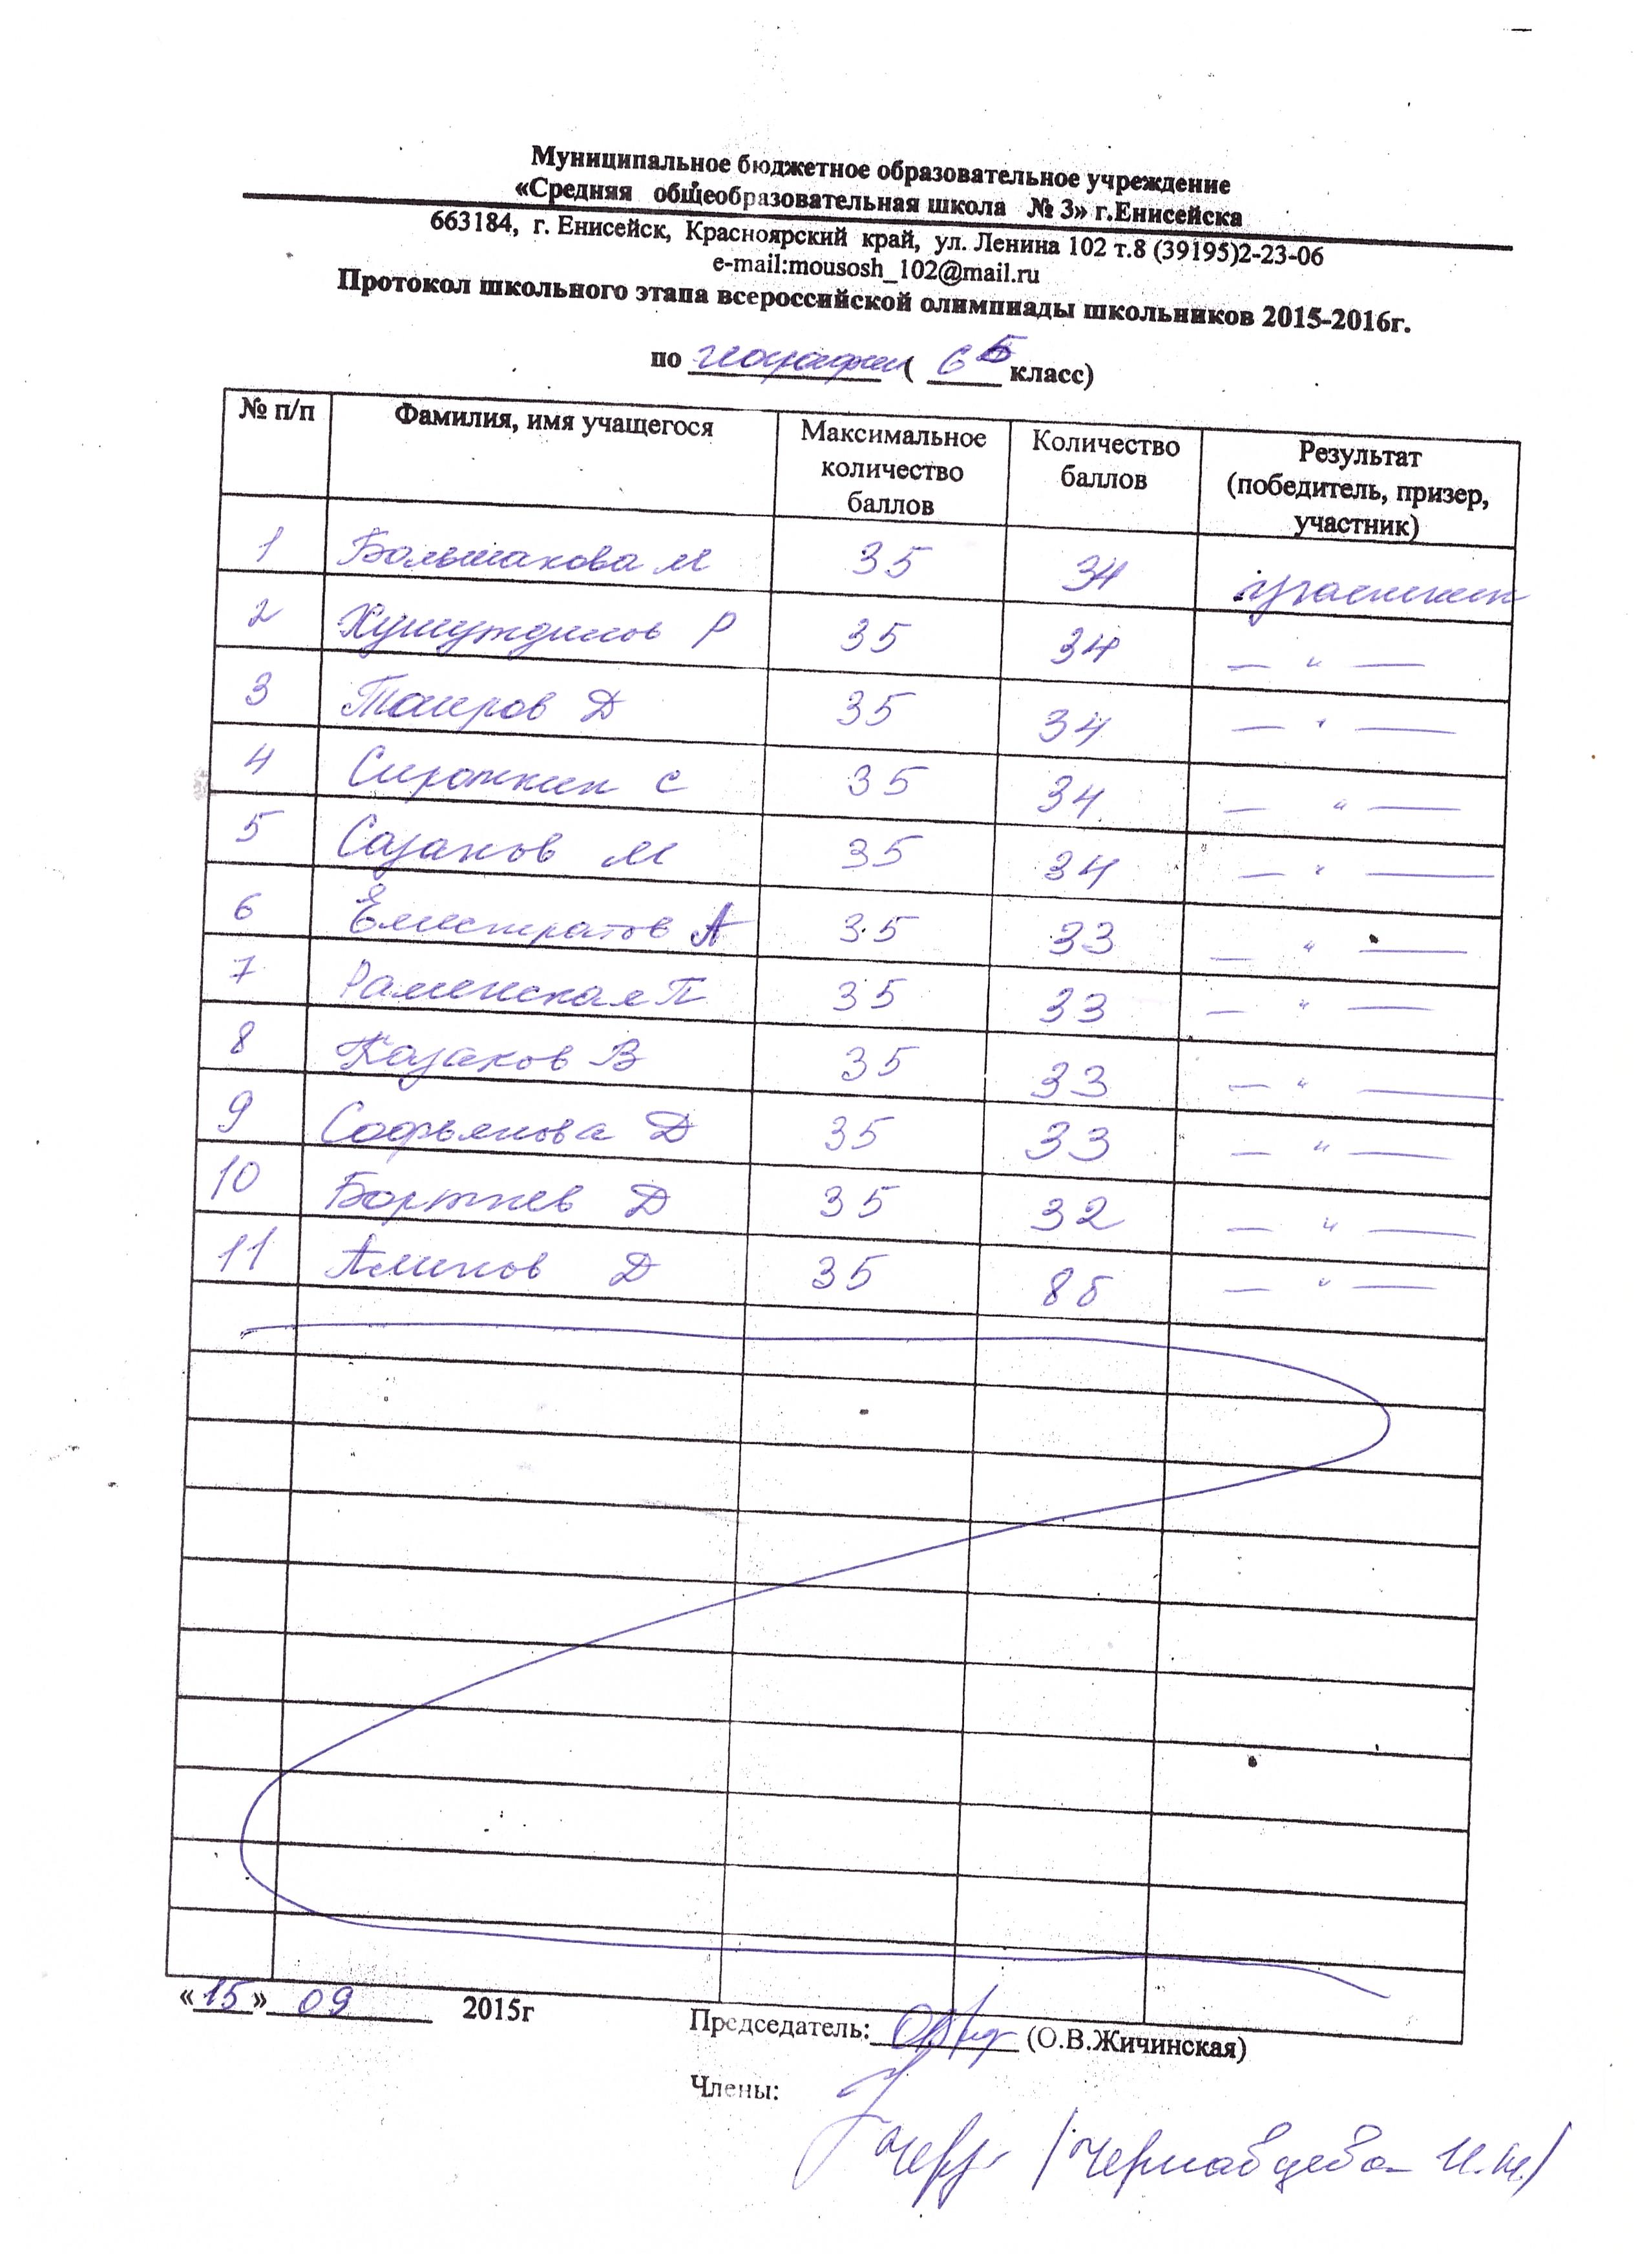 Муниципальное бюджетное образовательное учреждение
«Средняя общеобразовательная школа № 3» г.Енисейска
663184, г. Енисейск, Красноярский край, ул. Ленина 102 т.8 (39195)2-23-06
e-mail:mousosh_102@mail.ru
Протокол школьного этапа всероссийской олимпиады школьников 2015-2016г.
по географии ( 6 Б класс)
№ п/п Фамилия, имя учащегося Максимальное количество баллов Количество баллов Результат (победитель, призер, участник)
1 Большакова М 35 34 участник
2 Р 35 34 — " —
3 Таиров Д 35 34 — " —
4 Сироткин С 35 34 — " —
5 Сазанов М 35 34 — " —
6 Елистратов А 35 33 — " —
7 Раменская П 35 33 — " —
8 Казаков В 35 33 — " —
9 Софьянова Д 35 33 — " —
10 Бортнев Д 35 32 — " —
11 Аминов Д 35 8б — " —
«15» 09 2015г
Председатель: (О.В.Жичинская)
Члены: